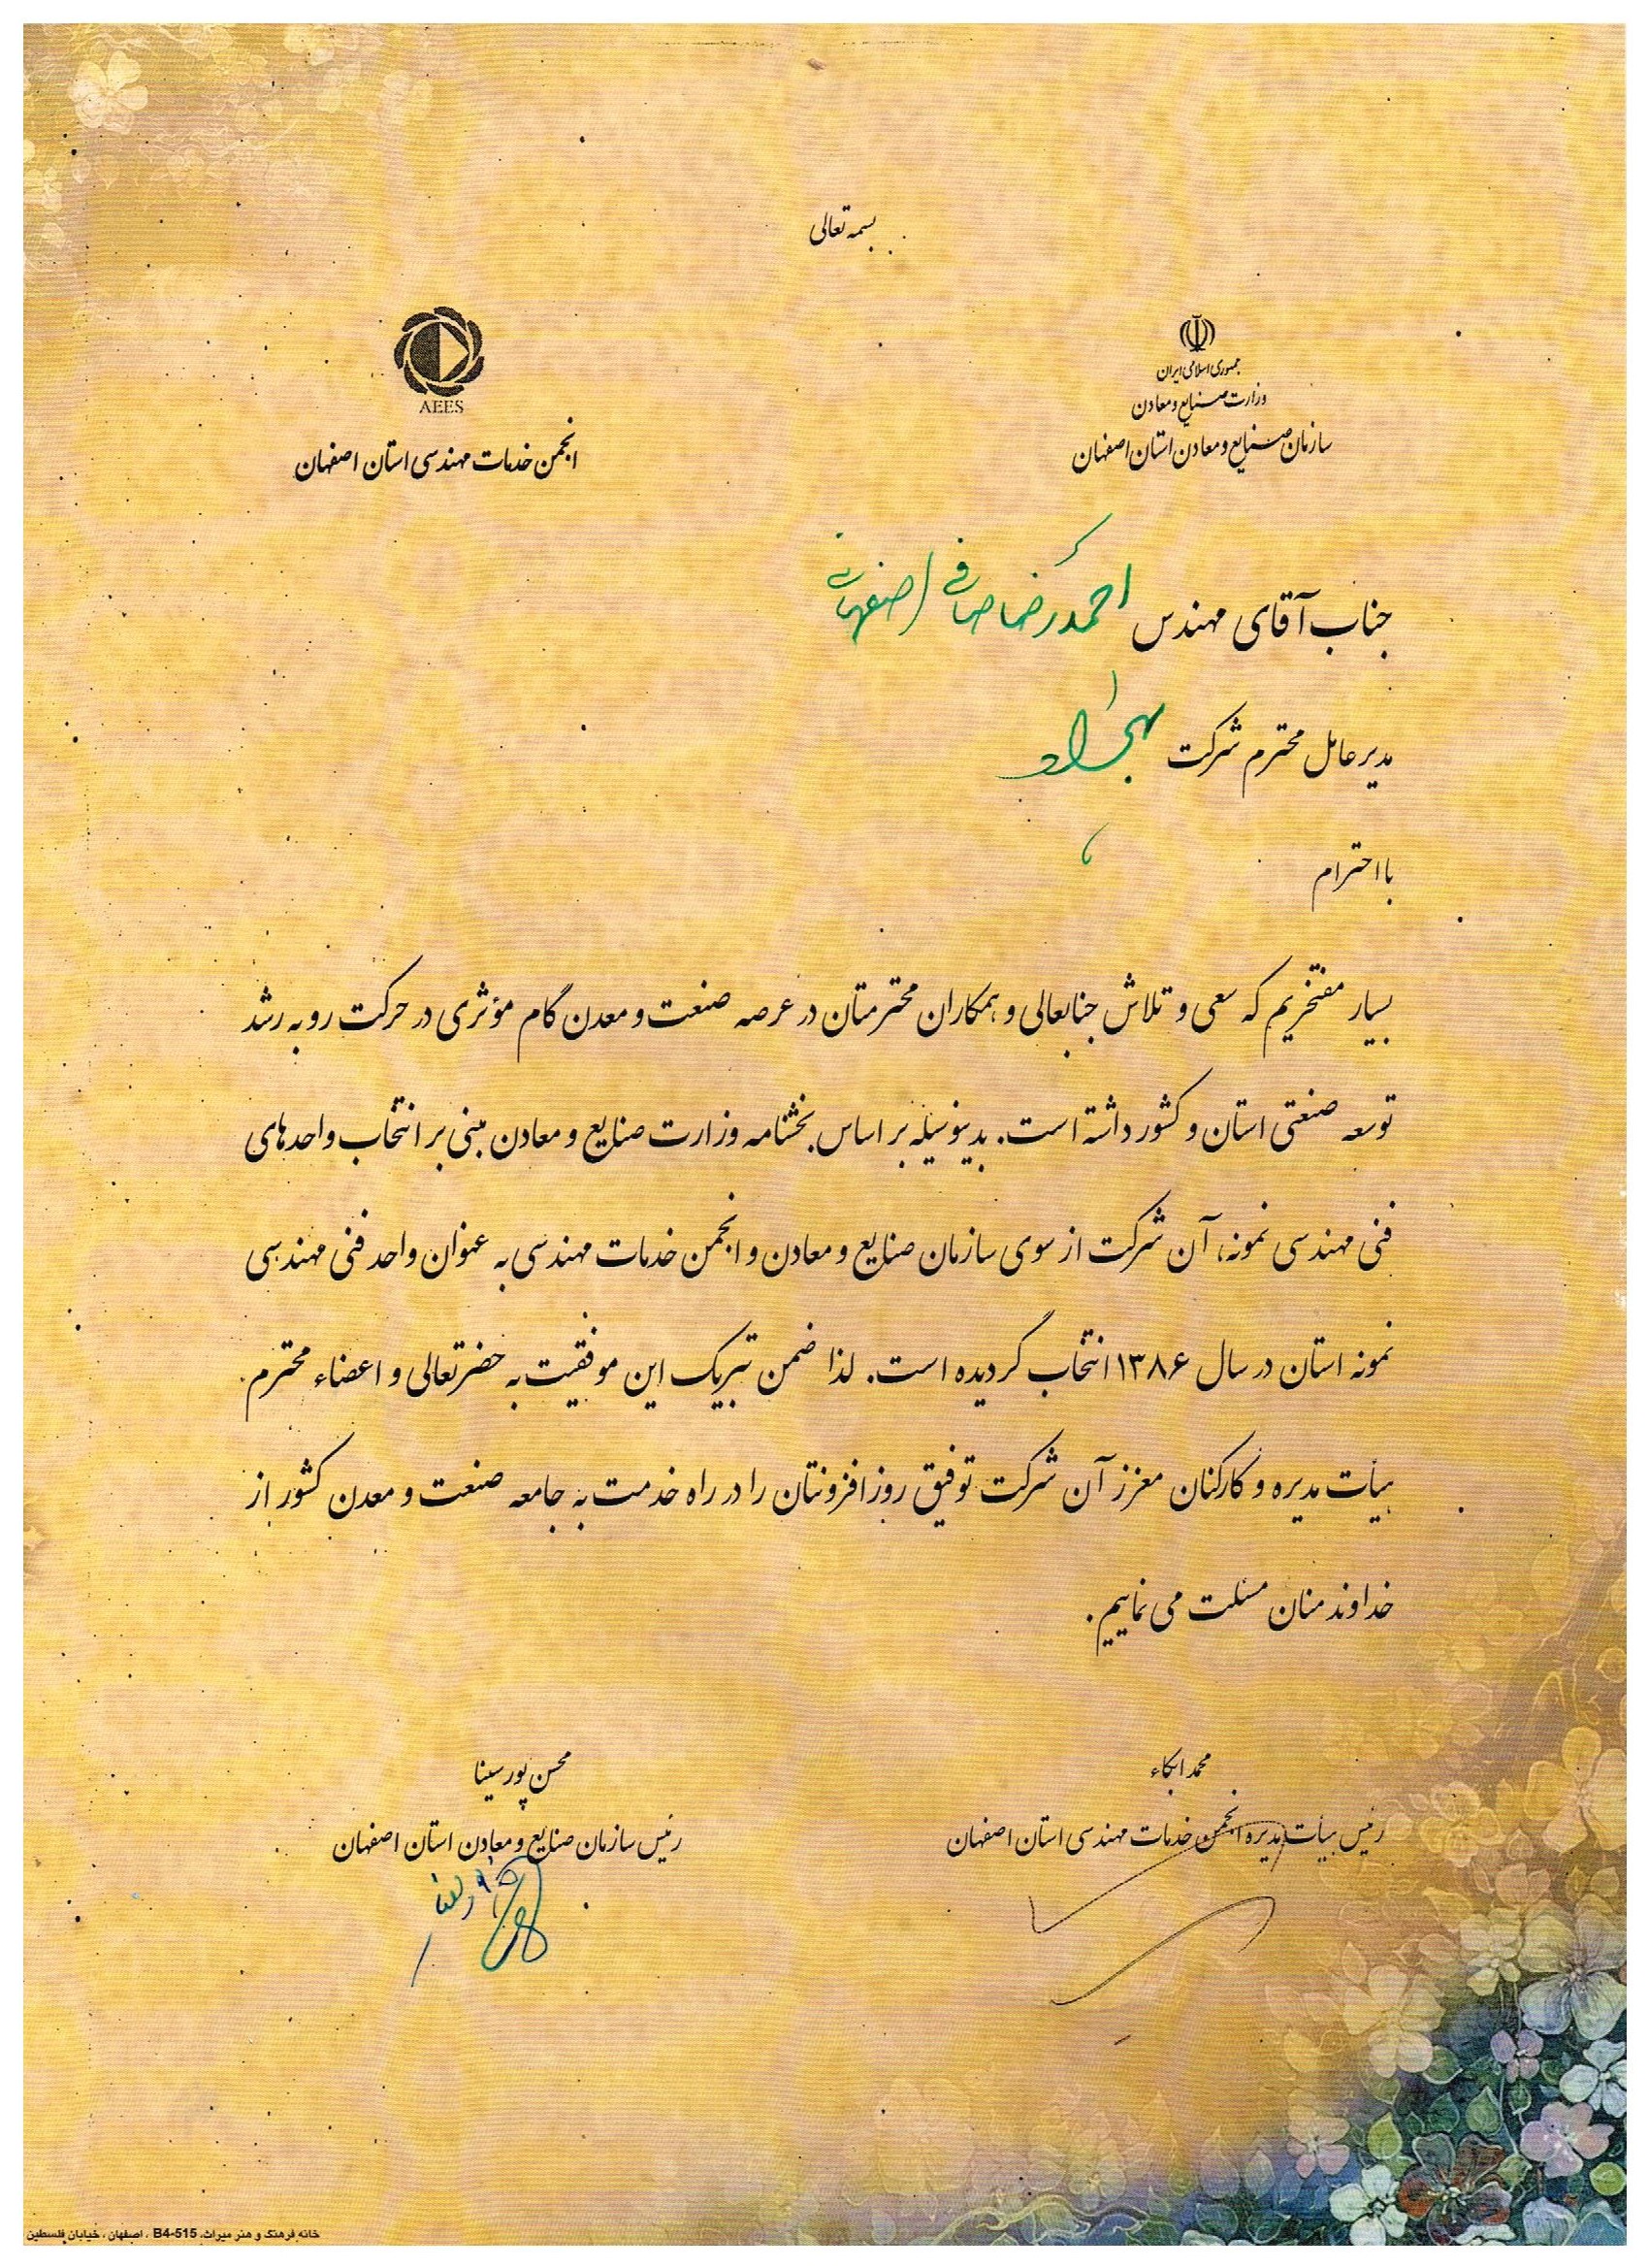 بسمه تعالی
جمهوری اسلامی ایران
وزارت صنایع و معادن
سازمان صنایع و معادن استان اصفهان
AEES
انجمن خدمات مهندسی استان اصفهان
جناب آقای مهندس احمدرضا صافی اصفهانی
مدیر عامل محترم شرکت
با احترام
بسیار مفتخریم که سعی و تلاش جنابعالی و همکاران محترمتان در عرصه صنعت و معدن گام مؤثری در حرکت رو به رشد
توسعه صنعتی استان و کشور داشته است. بدینوسیله بر اساس بخشنامه وزارت صنایع و معادن مبنی بر انتخاب واحدهای
فنی مهندسی نمونه، آن شرکت از سوی سازمان صنایع و معادن و انجمن خدمات مهندسی به عنوان واحد فنی مهندسی
نمونه استان در سال ۱۳۸۶ انتخاب گردیده است. لذا ضمن تبریک این موفقیت به حضرتعالی و اعضاء محترم
هیأت مدیره و کارکنان معزز آن شرکت توفیق روزافزونتان را در راه خدمت به جامعه صنعت و معدن کشور از
خداوند منان مسئلت می نماییم.
محمد ابکاء
رئیس هیأت مدیره انجمن خدمات مهندسی استان اصفهان
محسن پورسینا
رئیس سازمان صنایع و معادن استان اصفهان
خانه فرهنگ و هنر میراث، B4-515 ، اصفهان ، خیابان فلسطین